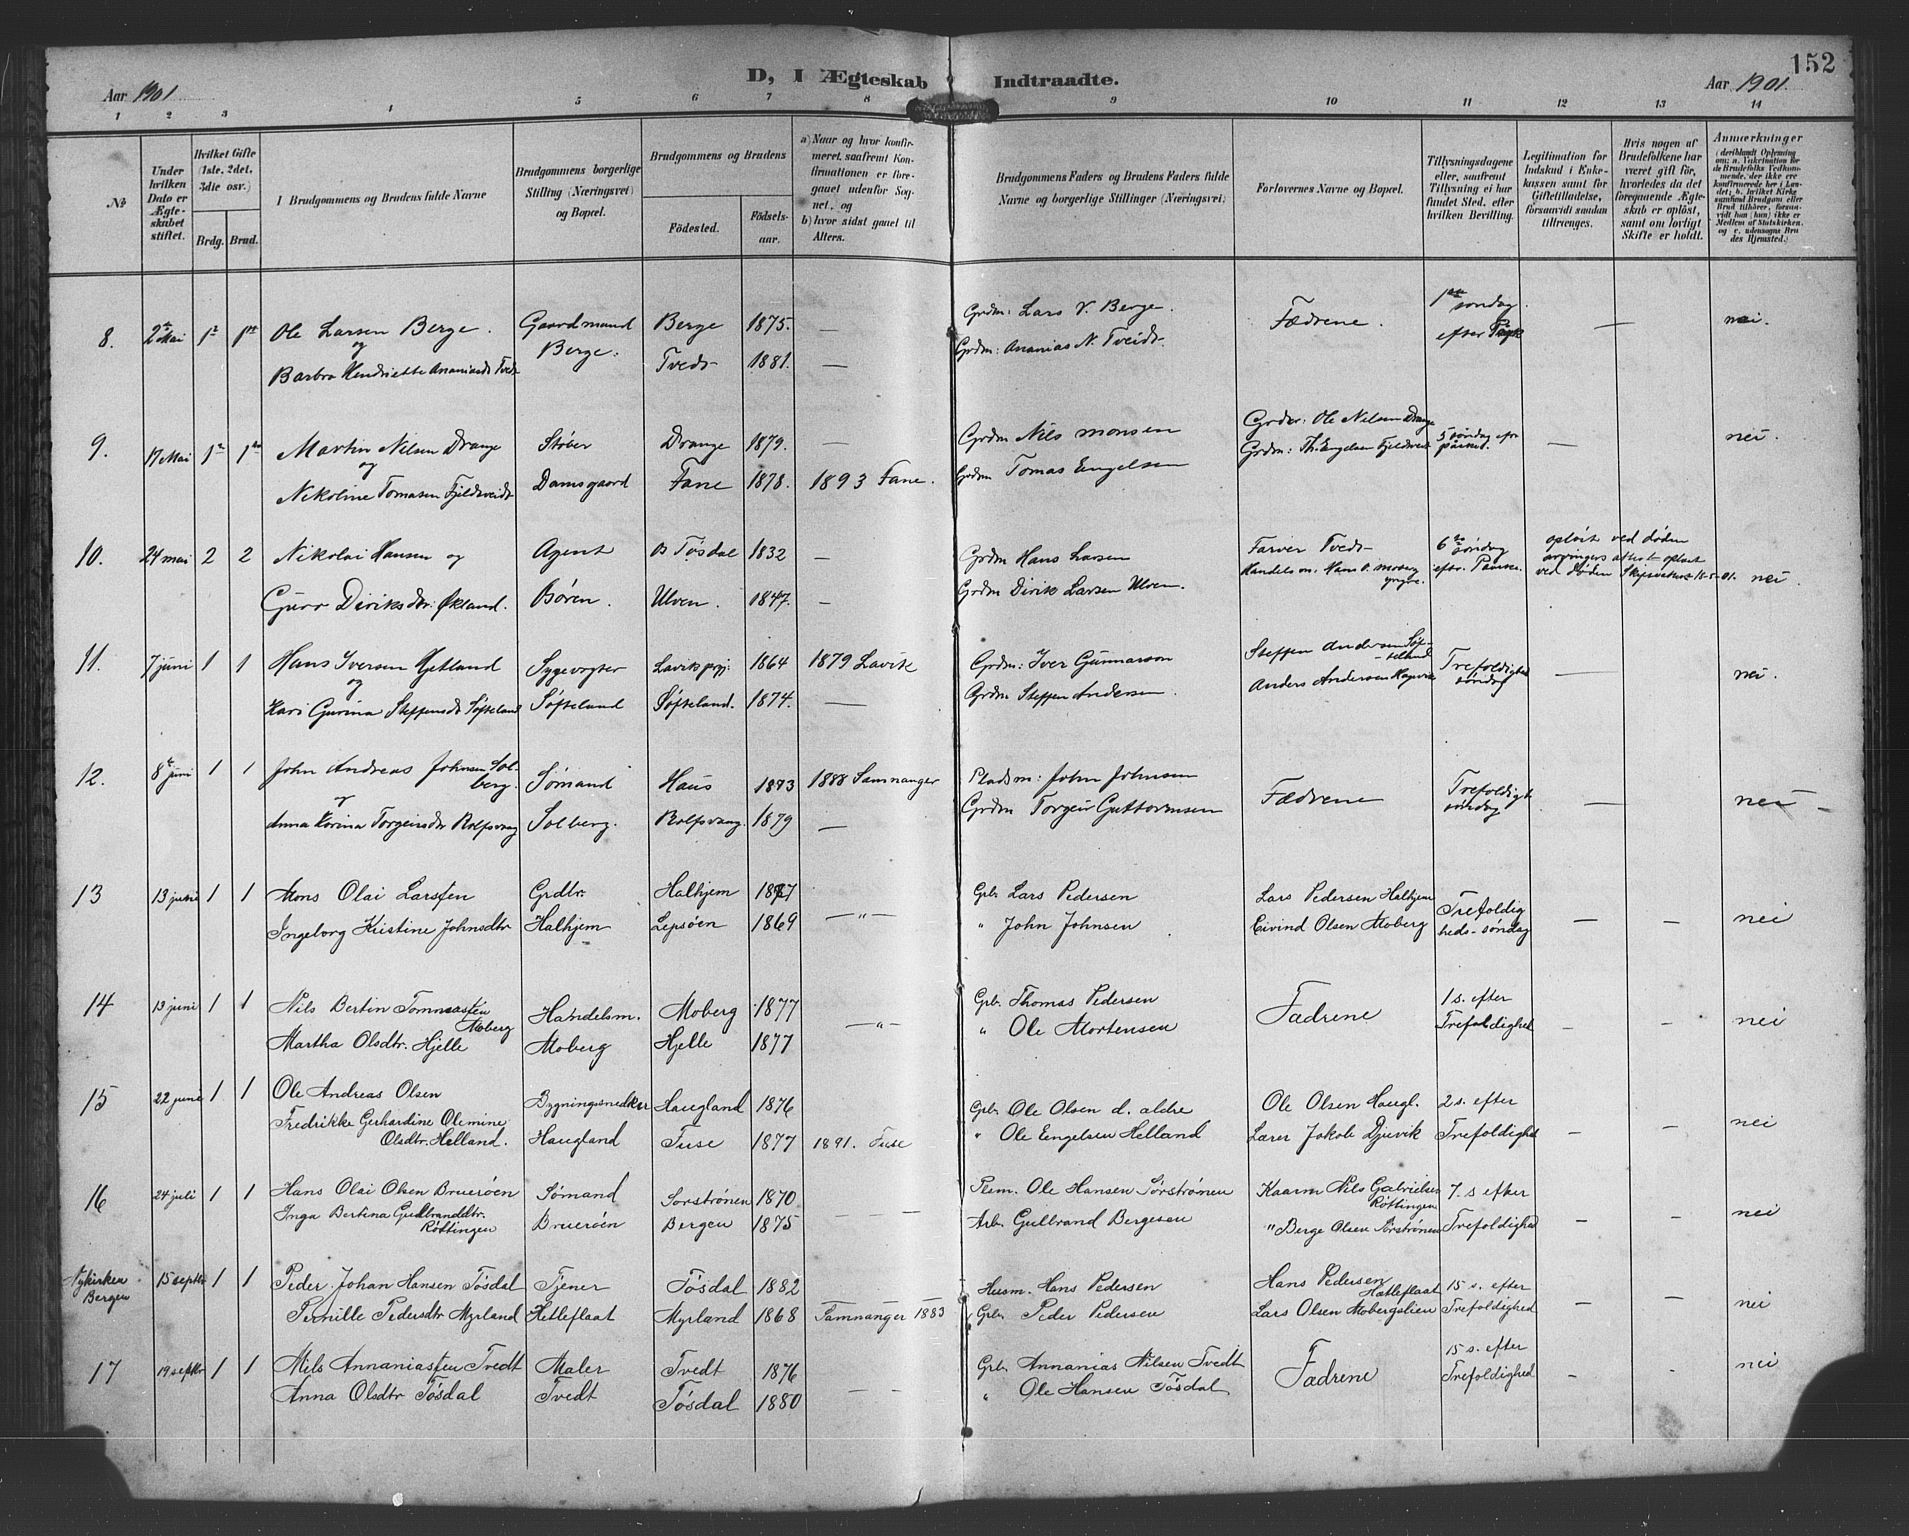 152
D, I Ægteskab Indtraadte.
Aar 1901 Aar 1901.
1 2 3 4 5 6 7 8 9 10 11 12 13 14
№
Under hvilken Dato er Ægteskabet stiftet.
Hvilket Gifte (1ste, 2det, 3die osv.)
Brdg. Brud.
Brudgommens og Brudens fulde Navne
Brudgommens borgerlige Stilling (Næringsvei) og Bopæl.
Brudgommens og Brudens
Fødested. Fødselsaar.
a) Naar og hvor konfirmeret, saafremt Konfirmationen er foregaaet udenfor Sognet, og
b) hvor sidst gaaet til Alters.
Brudgommens Faders og Brudens Faders fulde Navne og borgerlige Stillinger (Næringsvei).
Forlovernes Navne og Bopæl.
Tillysningsdagene eller, saafremt Tillysning ei har fundet Sted, efter hvilken Bevilling.
Legitimation for Indskud i Enkekassen samt for Giftetilladelse, forsaavidt saadan tiltrænges.
Hvis nogen af Brudefolkene har været gift før, hvorledes da det foregaaende Ægteskab er opløst, samt om lovligt Skifte er holdt.
Anmærkninger
8. 2 Mai 1 1 Ole Larsen Berge. Gaardmand Berge 1875. — Grdm: Lars V. Berge. Fædrene. 1 søndag — nei.
og Berge: efter
Barbro Hendriette Tvedt 1881. — Grdm: Ananias N. Tveidt
9. 17 Mai 1 1 Martin Nilsen Drange Støber Drange 1879. — Grdm Nils Monsen Ole Nilsen Drange 5 søndag — nei.
og Grdm: Th. Engelsen
Nikoline Tomasen Fjeldsveidt Damsgaard Fane 1878. 1893 Fane. Grdm Tomas Engelsen
10. 24 mai 2 2 Nikolai Hansen og Agent Tøsdal 1832 — Grdm Hans Larsen Farver Tvedt 6 søndag opløst ved døden
efter
ved Døden 18-5-01. nei.
Guro Diriksdtr: Økland. Børen. Ulven. 1847. — Grdm Dirik Larsen Ulven.
11. 7 juni 1 1 Hans Iversen Hetland Sygevogter 1864 1879 Lavik Grdm: Iver Gunnarson Steffen Andersen Søfteland Trefoldigheds søndag — nei.
og Anders Andersen
Kari Gurina Steffensdt Søfteland Søfteland Søfteland. 1874. — Grdm Steffen Andersen.
12. 8 juni 1 1 John Andreas Johnsen Solberg. Sømand Haus 1873 1888 Samnanger Pladsm: John Johnsen Fædrene Trefoldigh søndag — nei —
og
Anna Karina Torgeirsdtr Rolfsvaag Solberg. Rolfsvaag. 1879 — Grdm Torgeir Guttormsen
13 13 juni 1 1 Mons Olai Larssen Grdbr. Halhjem 1877 Grb. Lars Pedersen Lars Pedersen Halhjem Trefoldig
Ingeborg Kristine Johnsdtr Halhjem Lepsøen 1869 — " — " John Johnsen Eivind Olsen Moberg heds-søndag — — nei
14 13 juni 1 1 Nils Bertin Tommassen Moberg Handelsm. Moberg 1877 — " — Grb. Thomas Pedersen Fædrene 1 s. efter
Martha Olsdtr. Hjelle Moberg Hjelle 1877 " Ole Mortensen Trefoldighed — — nei
15 22 juni 1 1 Ole Andreas Olsen Bygningssnedker Haugland 1876 Grb. Ole Olsen d. ældre Ole Olsen Haugl. 2 s. efter
Fredrikke Gerhardine Olemine Olsdtr. Helland. Haugland Fuse 1877 1891. Fuse " Ole Engelsen Helland Lærer Jakob Djuvik Trefoldighed — — nei
16 24 juli 1 1 Hans Olai Olsen Bruerøen Sømand Sørstrønen 1870 — — Plsm. Ole Hansen Sørstrønen Kaarm Nils Gabrielsen Røttingen 7. s efter
Inga Bertina Gulbrandsdtr. Røttingen Bruerøen Bergen 1875 Arb. Gulbrand Bergesen " Berge Olsen Sørstrønen Trefoldighed — — nei
Nykirken Bergen 15 septbr 1 1 Peder Johan Hansen Tøsdal Tjener Tøsdal 1882 Husm. Hans Pedersen Hans Pedersen Hetleflaat 15 s. efter
Pernille Pedersdtr Myrland Hetleflaat Myrland 1868 Samnanger 1883 Grb. Peder Pedersen Lars Olsen Mobergslien Trefoldighed — — nei
17 19 septbr 1 1 Nils Annaniassen Tvedt Maler Tvedt 1876 — — Grb. Annanias Nilsen Tvedt Fædrene 15 s. efter
Anna Olsdtr Tøsdal Tvedt Tøsdal 1880 " Ole Hansen Tøsdal Trefoldighed — - nei